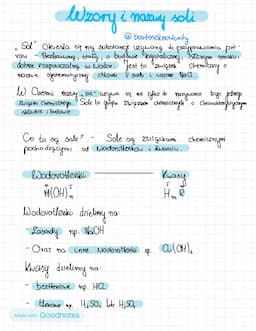 Wzory i nazwy soli
"Sól" Określa się nią substancję używaną do przyprawiania pot-
raw - Bezbarwną, stałą, o budowie krystalicznej, słonym smaku
dobrze rozpuszczalną w wodzie. Jest to związek chemiczny o
nazwie systematycznej chlorek sodu i wzorze NaCl.
W Chemii nazwy "sól" używa się nie tylko do nazywania tego jednego
związku chemicznego. Sole to grupa związków chemicznych o charakterystycznym
składzie i budowie.
Co to są sole? - Sole są związkami chemicznymi
pochodzącymi od wodorotlenków i kwasów.
Wodorotlenki Kwasy
M(OH)n HmR
Wodorotlenki dzielimy na:
- Zasady np. NaOH
- Oraz na inne wodorotlenki np.
Kwasy dzielimy na:
- beztlenowe np. HCl
- tlenowe np. H₂SO₄ lub H₂SO₃
Made with Goodnotes